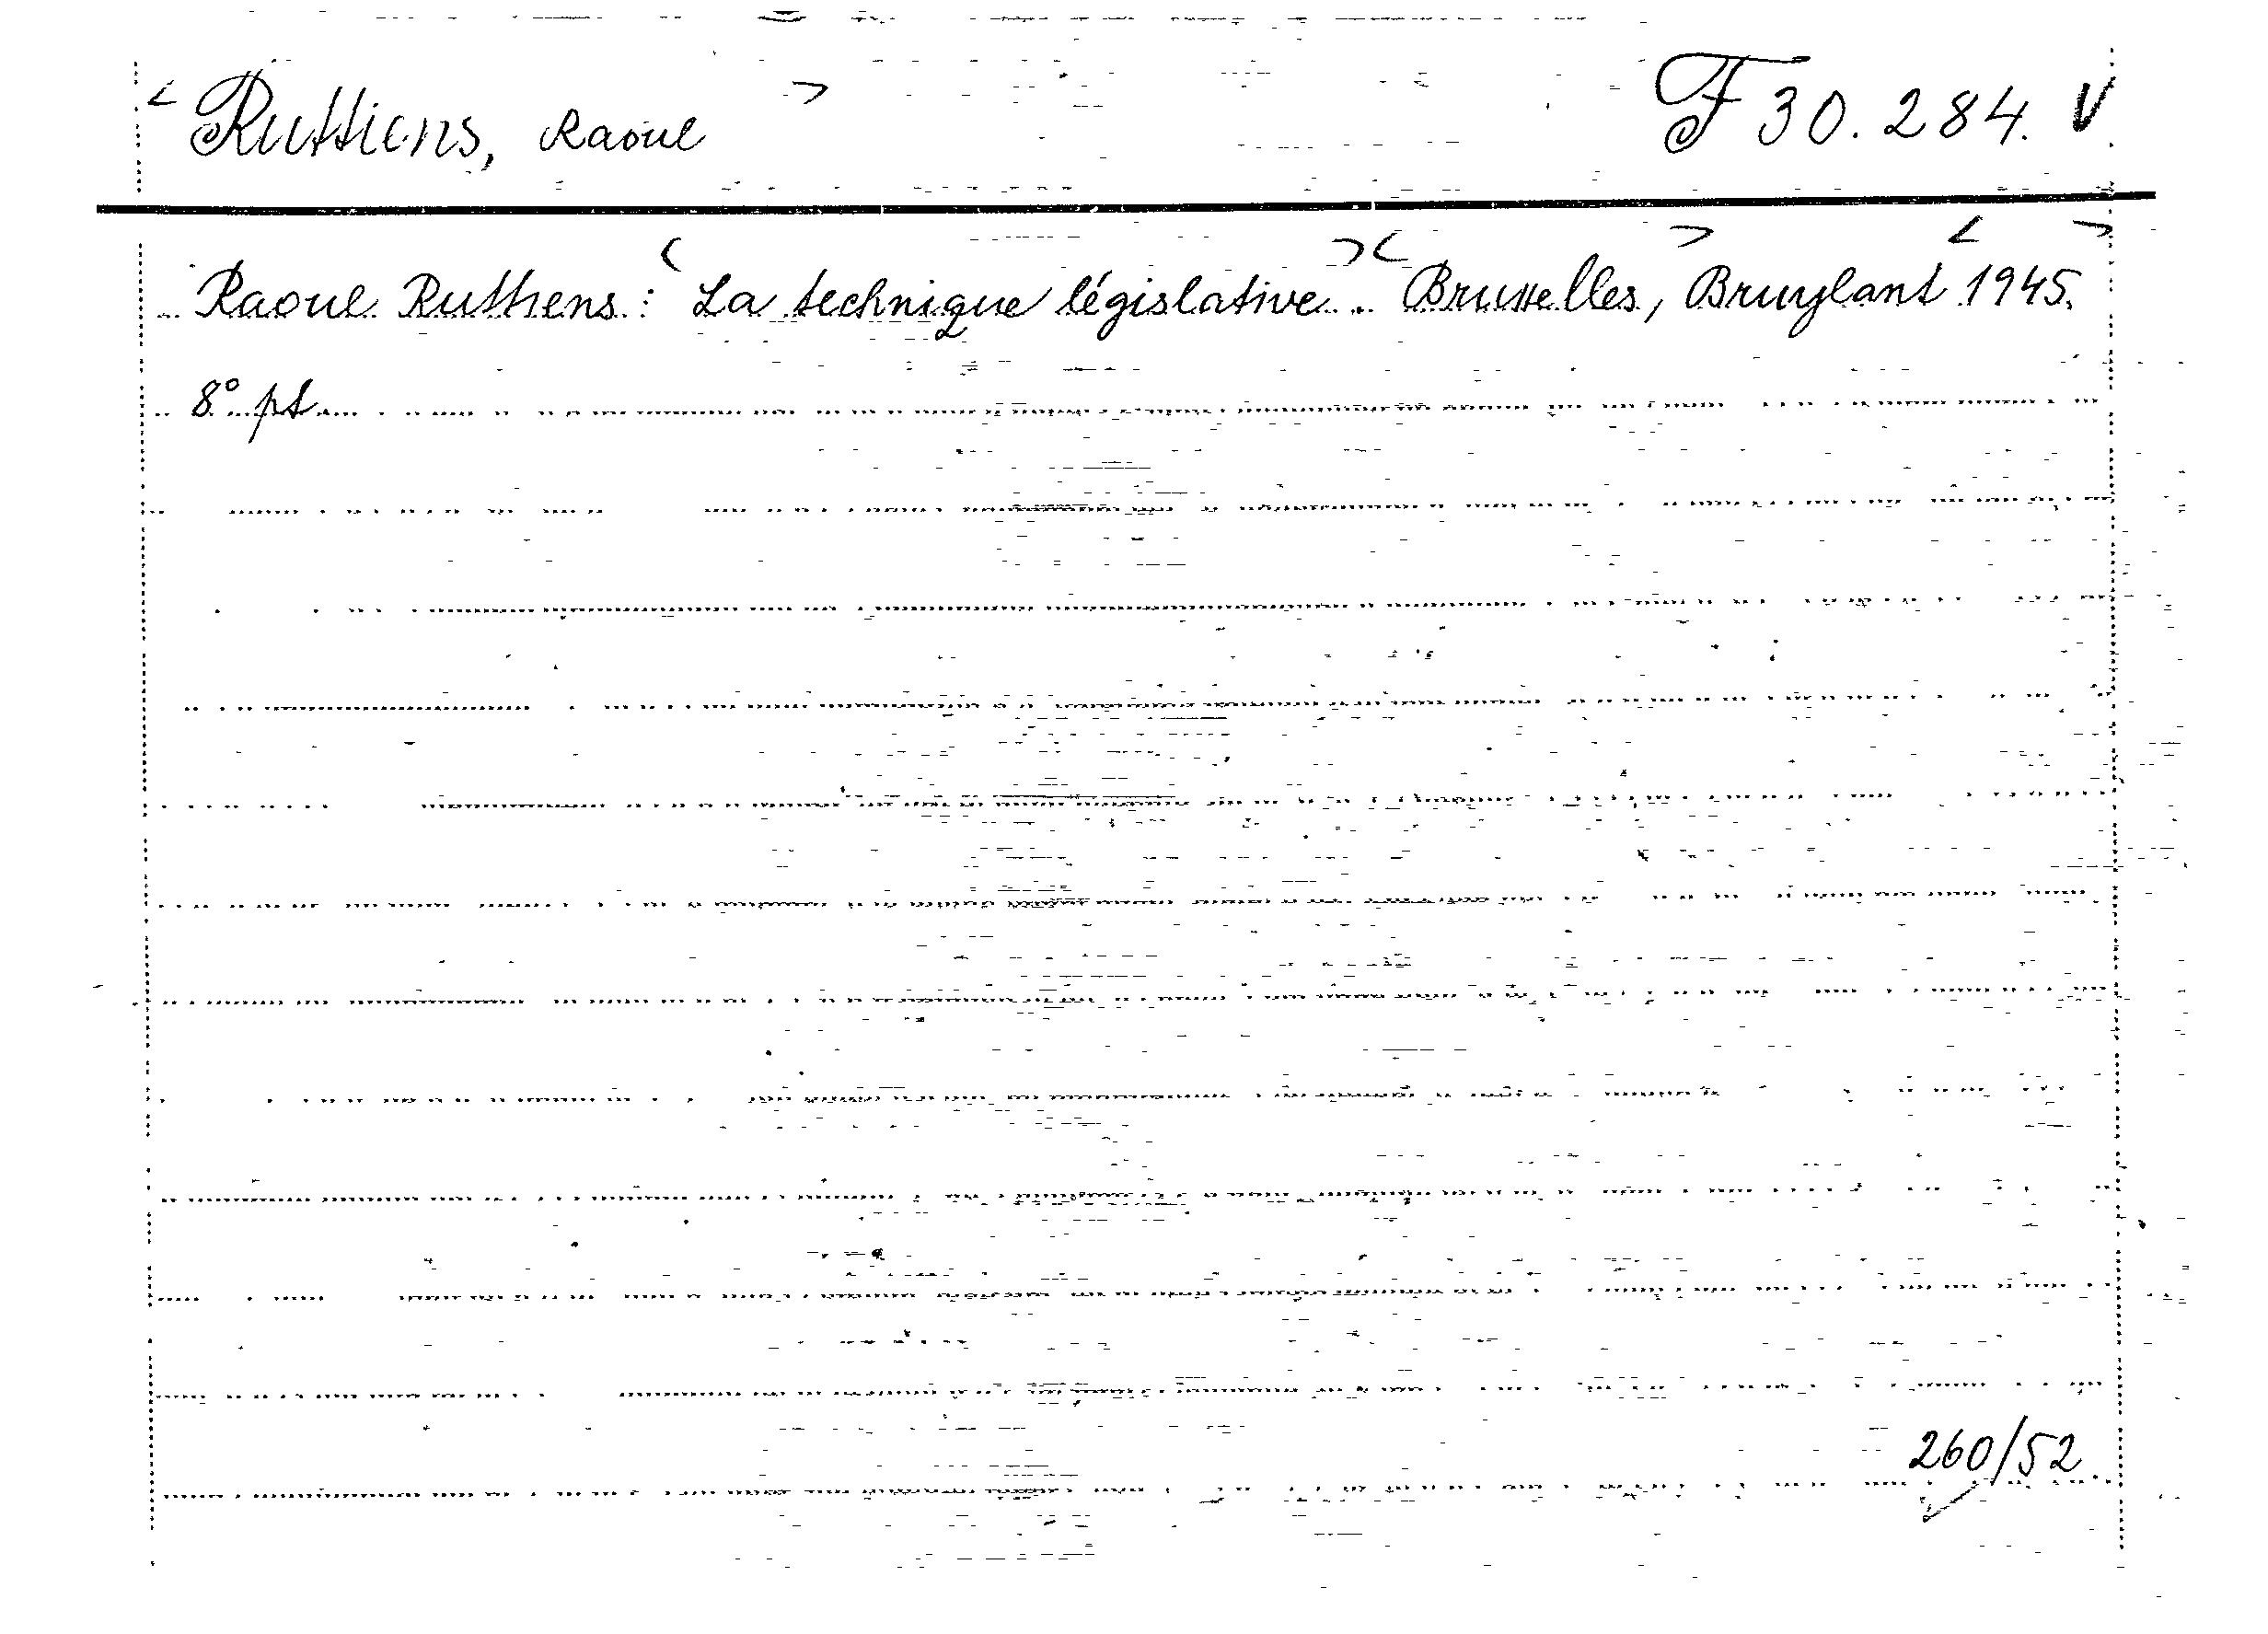 < Ruttiens, Raoul > F 30.284. V
Raoul Ruttiens : < La technique législative. > < Bruxelles, > Bruylant < 1945. >
8° pt
260/52